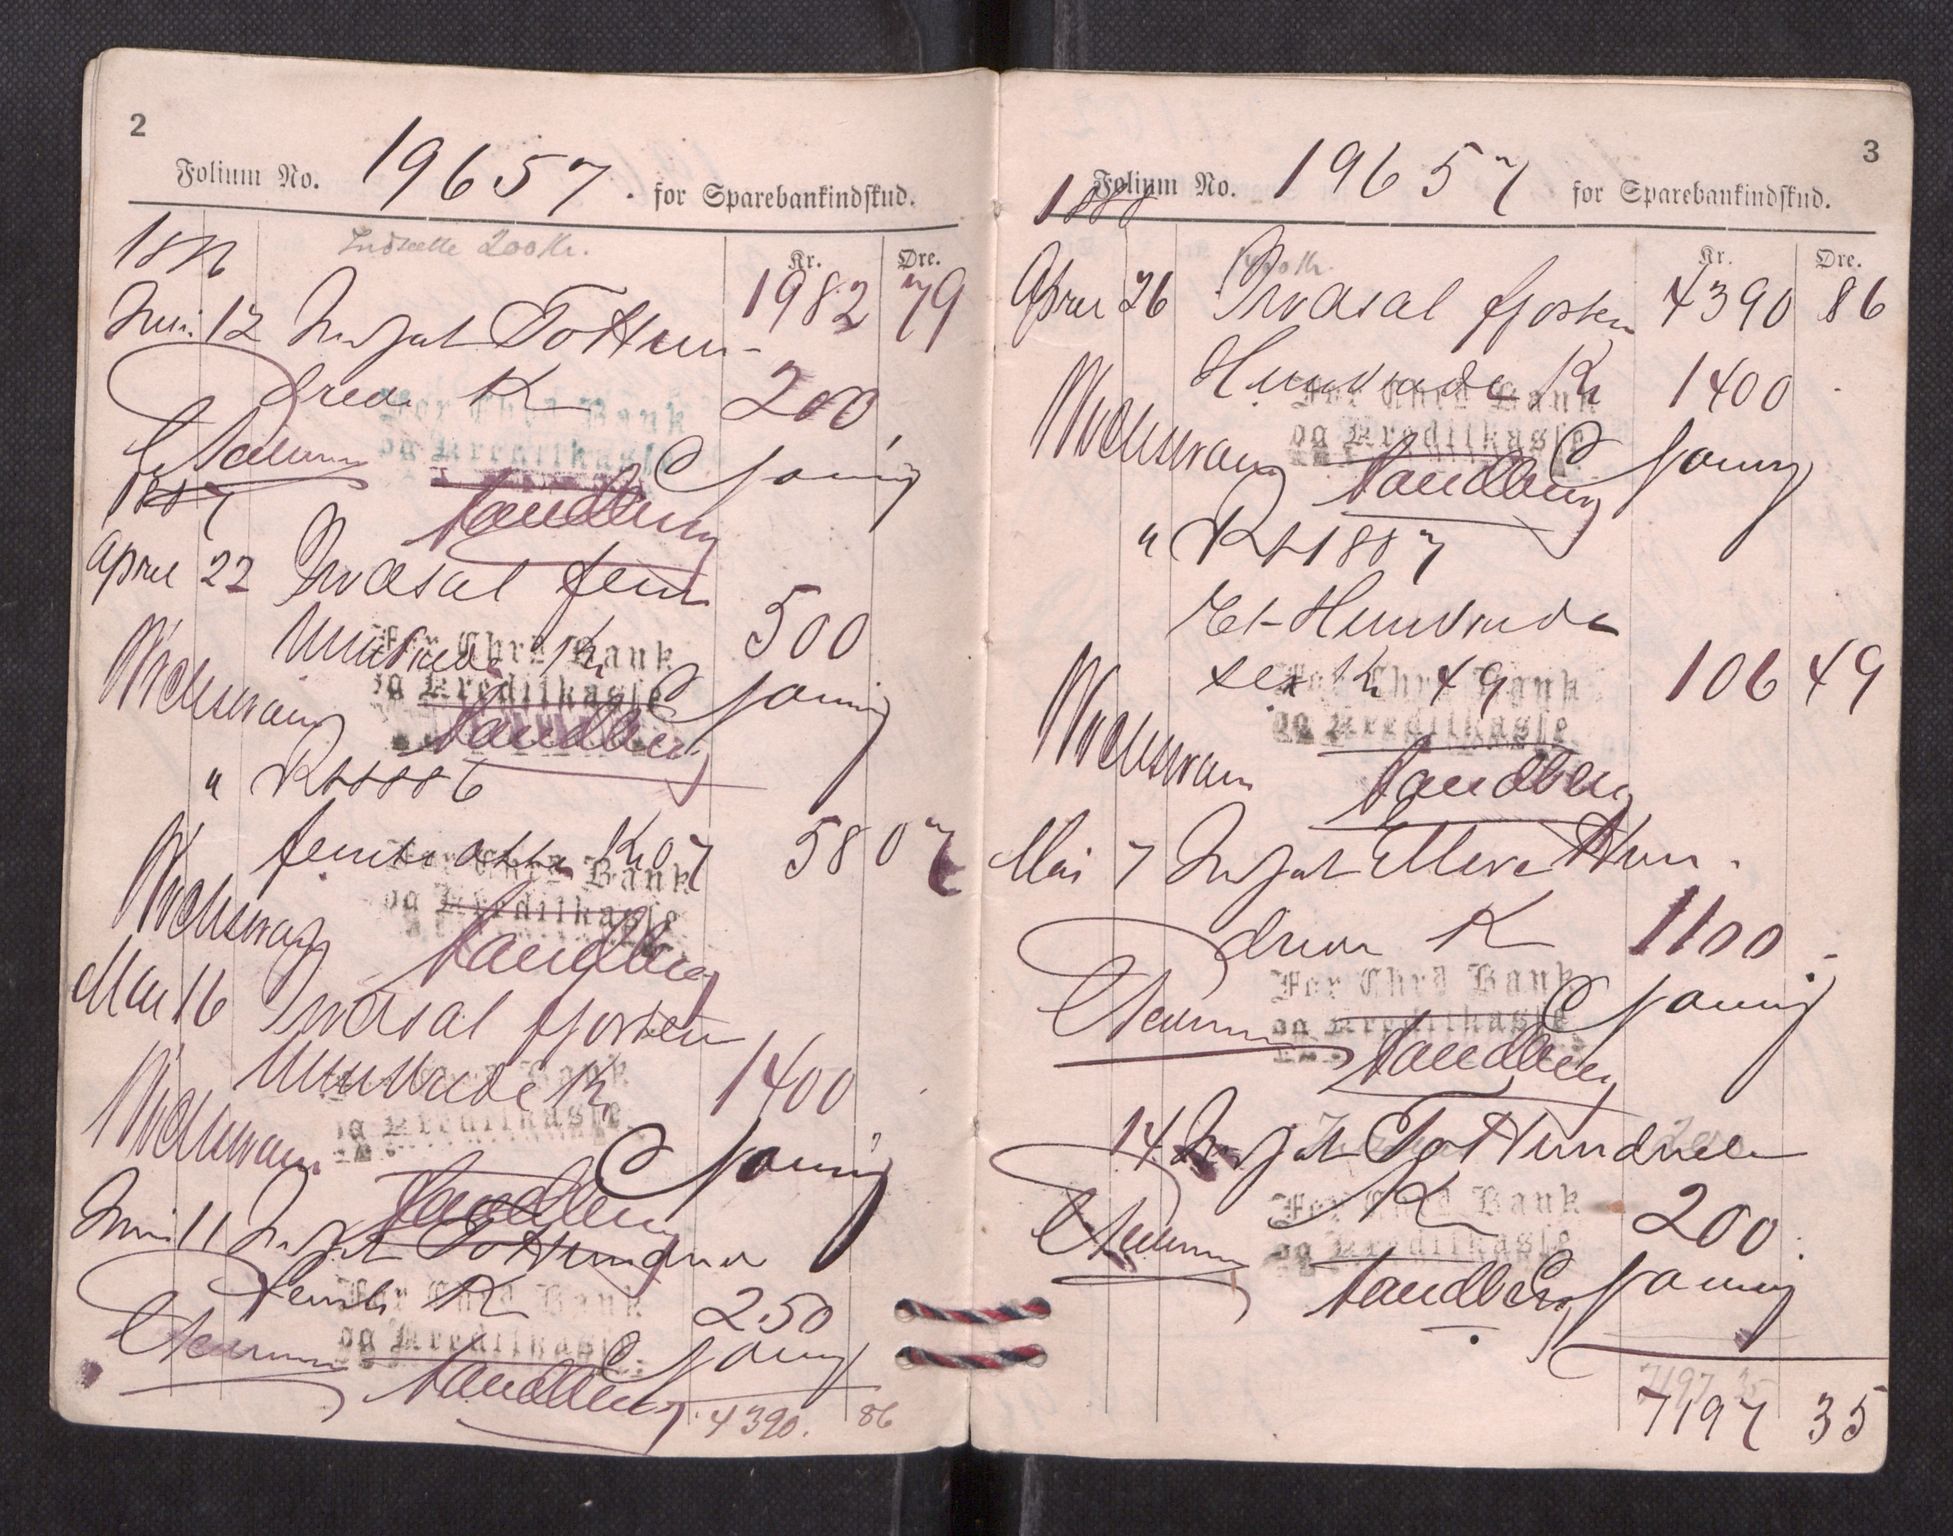 2
Folium No. 19657. for Sparebankindskud.
Indsætte 200 Kr.
Kr. Øre.
1982 79
Juni 12 Indsat To Hun-
drede K 200,
For Chrd Bank
og Kreditkasse
Sandberg
1887
April 22 Indsat fem
Hundrede Kr 500
For Chrd Bank
og Kreditkasse
Sandberg
" Rt 1886
femti otte Kr 07 58 07
For Chrd Bank
og Kreditkasse
Sandberg
Mai 16 Indsat fjorten
Hundrede Kr 1400
Bank
og Kreditkasse
Sandberg
Juni 11 Indsat To Hundrede
femti K 250
For Chrd Bank
og Kreditkasse
Sandberg
4390. 86
3
Folium No. 19657 for Sparebankindskud.
1888
1400 Kr.
Kr. Øre.
April 26 Indsat fjorten 4390 86
Hundrede Kr 1400
For Chrd Bank
og Kreditkasse
Sandberg
" Rt 1887
Et Hundrede
sex Kr 49 106 49
For Chrd Bank
og Kreditkasse
Sandberg
Mai 7 Indsat Elleve Hun-
drede K 1100 -
For Chrd Bank
og Kreditkasse
Sandberg
14 Indsat To Hundrede
K 200
For Chrd Bank
og Kreditkasse
Sandberg
7197 35
7197 35